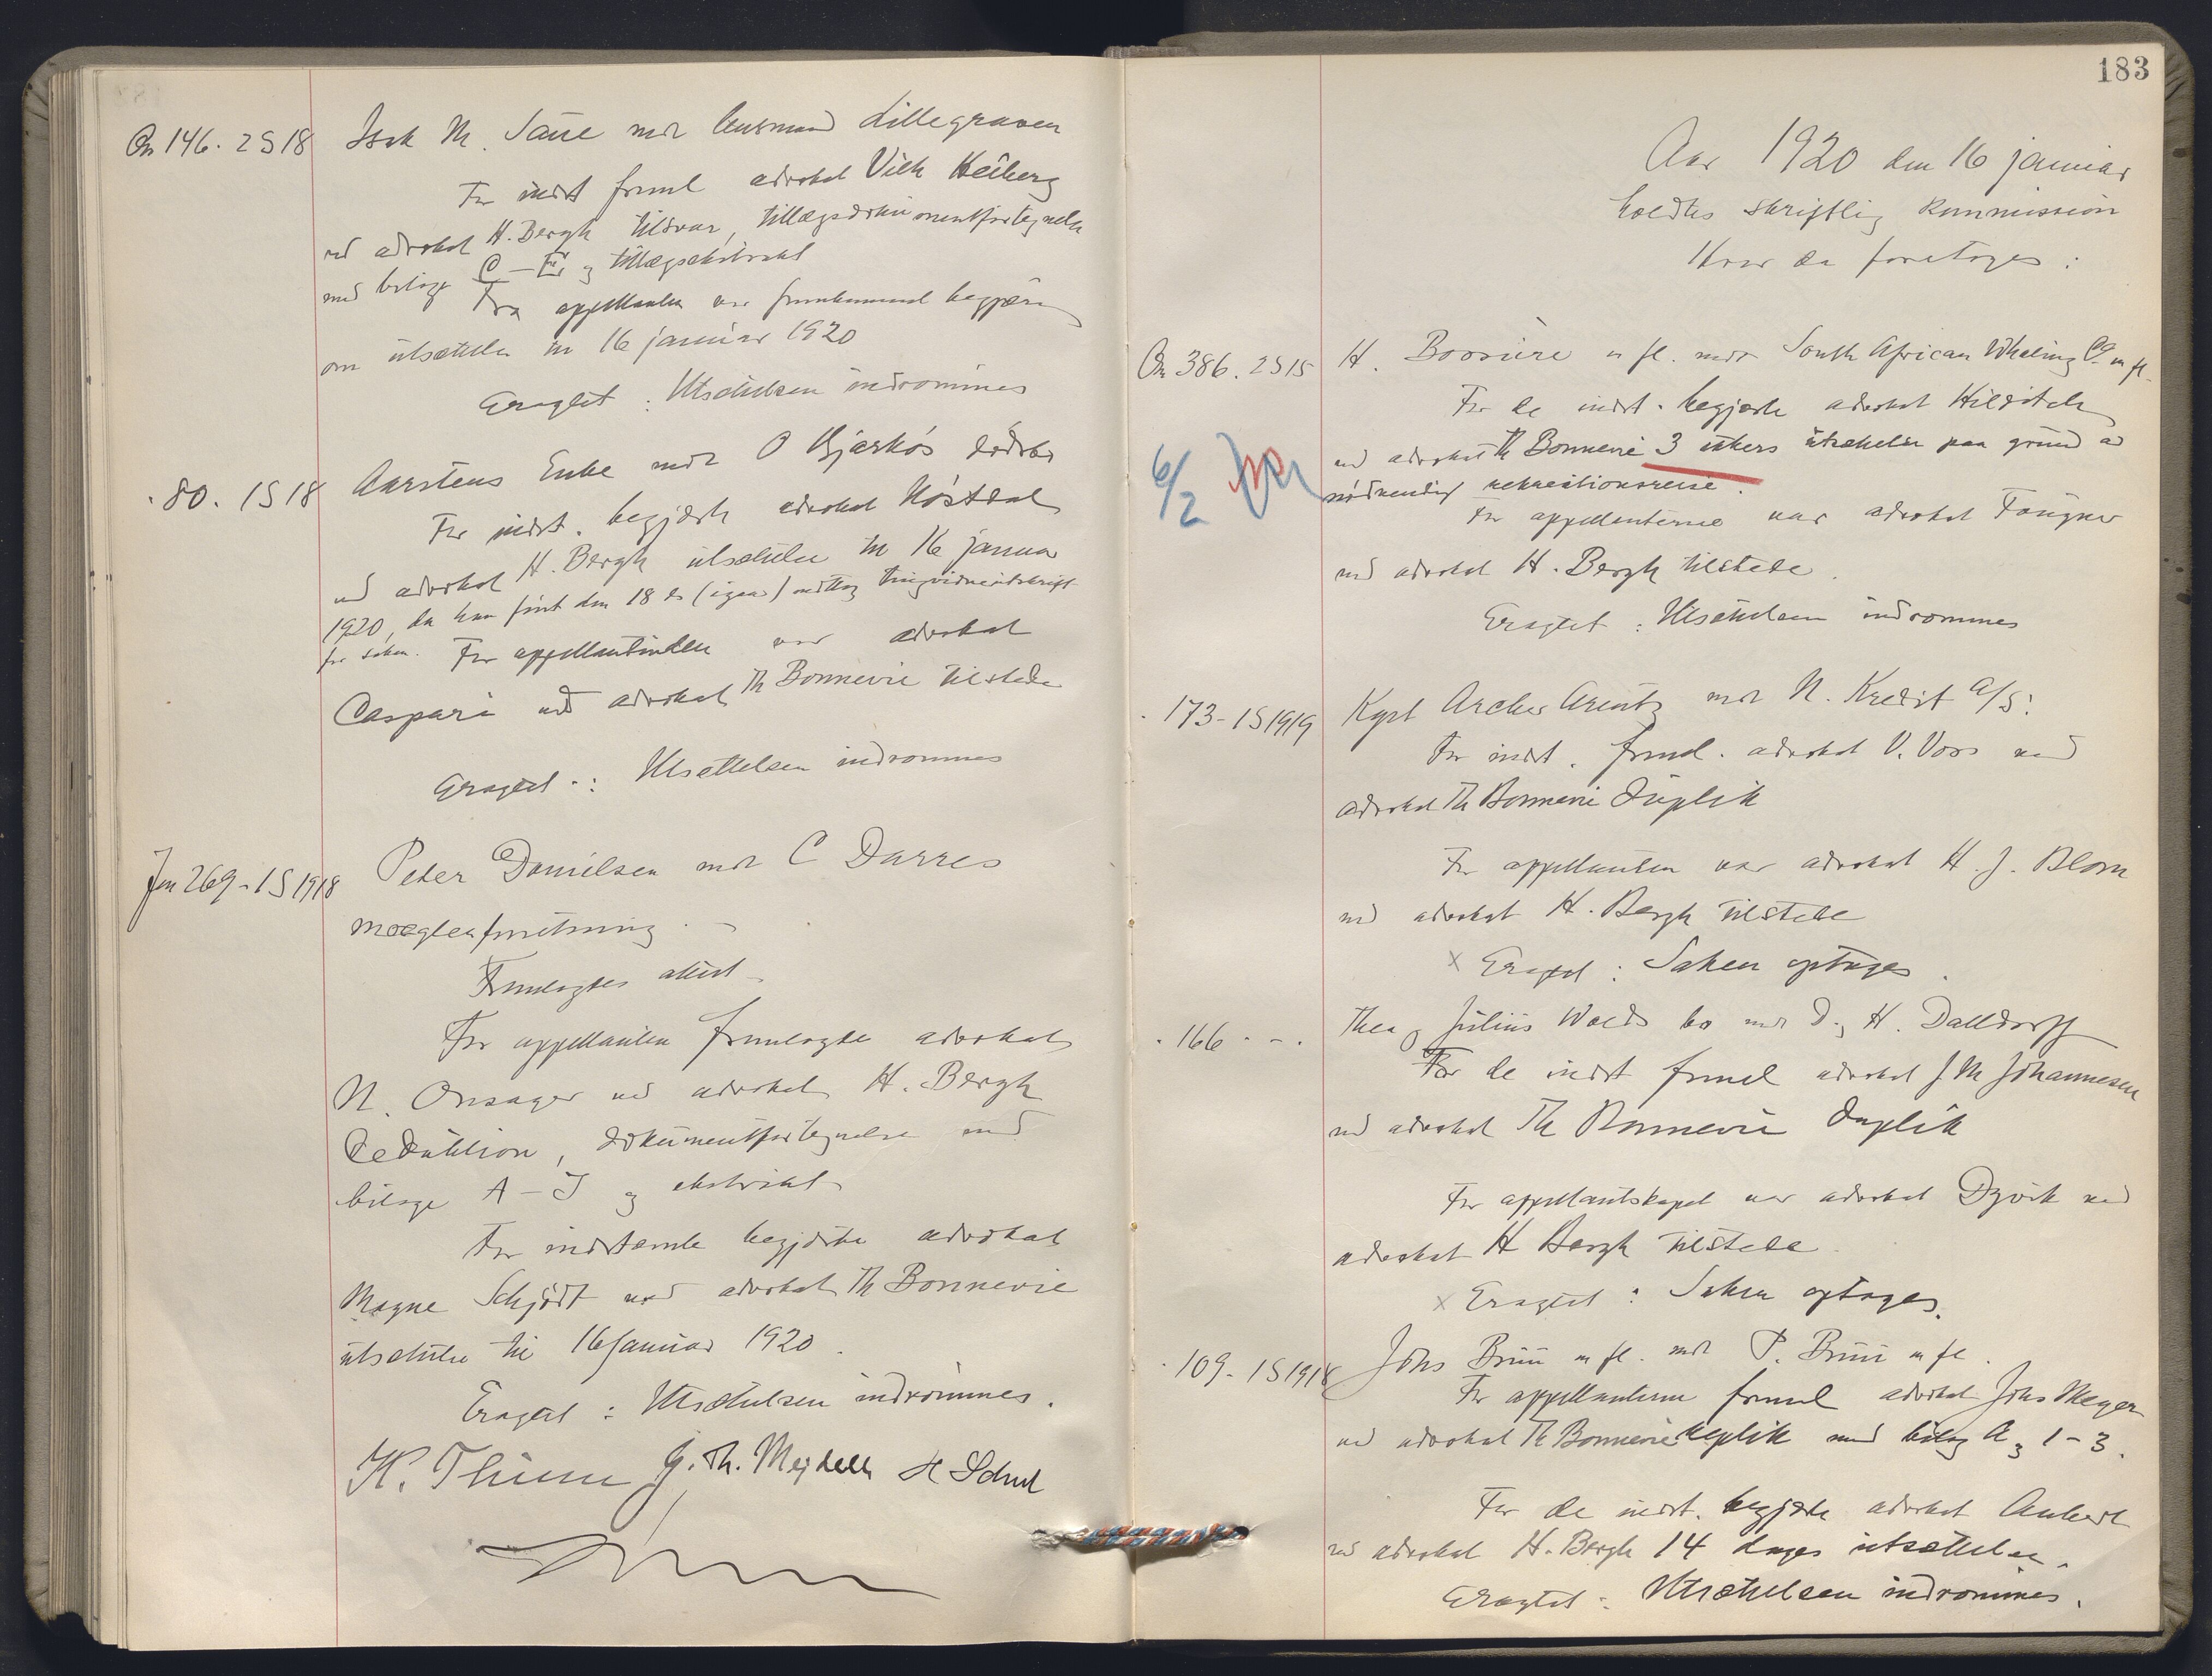 146. 2S18 Isak M. Saue mot Lillegraven
For indst freml advokat Vilh Heiberg
ved advokat H. Bergh tilsvar, tillægsdokumentfortegnelse
med bilage C – E og tillægsekstrakt
Fra appellanten var fremkommet begjæring
om utsættelse til 16 januar 1920
Eragtet: Utsættelsen indrømmes
80. 1S18 Aarstens Enke mot O Bjarkøs dødsbo
For indst. begjærte advokat
ved advokat H. Bergh utsættelse til 16 januar
1920, da han først den 18 ds (igaar) mottog tingsvidneutskrift
for saken. For appellantinden var advokat
Caspari ved advokat Th Bonnevie tilstede
Eragtet: Utsættelsen indrømmes
269-1S1918 Peter Danielsen mot C Darres
mæglerforretning
Fremlagdes
For appellanten fremlagde advokat
N. Onsager ved advokat H. Bergh
Deduktion, dokumentfortegnelse med
bilage A – J og ekstrakt
For indstevnte begjærte advokat
Magne Schjødt ved advokat Th Bonnevie
utsættelse til 16 januar 1920.
Eragtet: Utsættelsen indrømmes.
K. Thinn J. Th. Mejdell
183
Aar 1920 den 16 januar
holdtes skriftlig kommission
Hvor da foretoges:
386. 2S15 H. Bossière m fl. mot South African Whaling Co m fl.
For de indst. begjærte advokat Hilditch
ved advokat Th Bonnevie 3 ukers utsættelse paa grund av
nødvendig rekreationsreise.
6/2
For appellanterne var advokat Fougner
ved advokat H. Bergh tilstede.
Eragtet: Utsættelsen indrømmes
173-1S1919 Kapt Archer Arentz mot N. Kredit A/S:
For indst. freml. advokat V. Voss ved
advokat Th Bonnevie Duplik
For appellanten var advokat H. J. Blom
ved advokat H. Bergh tilstede
x Eragtet: Saken optages.
166 - - . Thea og Julius Wolds bo mot D. H. Dalldorff
For de indst freml advokat J M Johannesen
ved advokat Th Bonnevie Duplik
For appellantskapet var advokat Dyvik ved
advokat H Bergh tilstede.
x Eragtet: Saken optages.
109-1S1918 Johs Bruu m fl. mot P. Bruu m fl.
For appellanterne freml advokat Johs Meyer
ved advokat Th Bonnevie Replik med bilag A og 1-3.
For de indst. begjærte advokat Aubert
ved advokat H. Bergh 14 dages utsættelse.
Eragtet: Utsættelsen indrømmes.